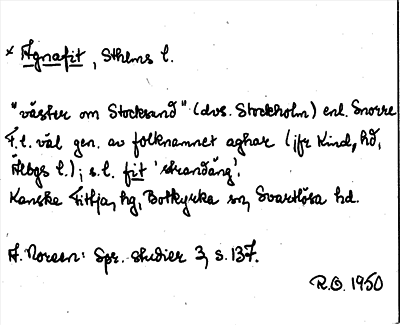 * Agnafit, Sthlms l.
"väster om Stocksund" (dvs. Stockholm) enl. Snorre
F.l. väl gen. av folknamnet agnar (jfr Kind, hd,
Älvbgs l.); s.l. fit 'strandäng'.
Kanske Fittja, hg, Botkyrka sn, Svartlösa hd.
A. Noreen: Spr. studier 3, s. 137.
R.O. 1950